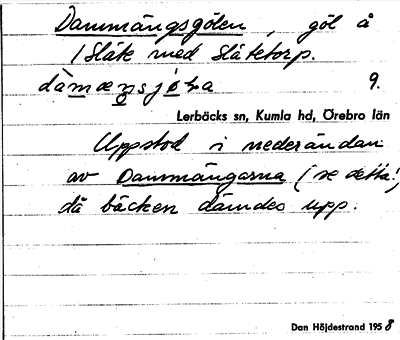 Dammängsgölen, göl å
/Släte med Slätetorp.
dàmæŋsjö̀ḷa 9.
Lerbäcks sn, Kumla hd, Örebro län
Uppstod i nederändan
av Dammängarna (se detta!)
då bäcken dämdes upp.
Dan Höjdestrand 1958